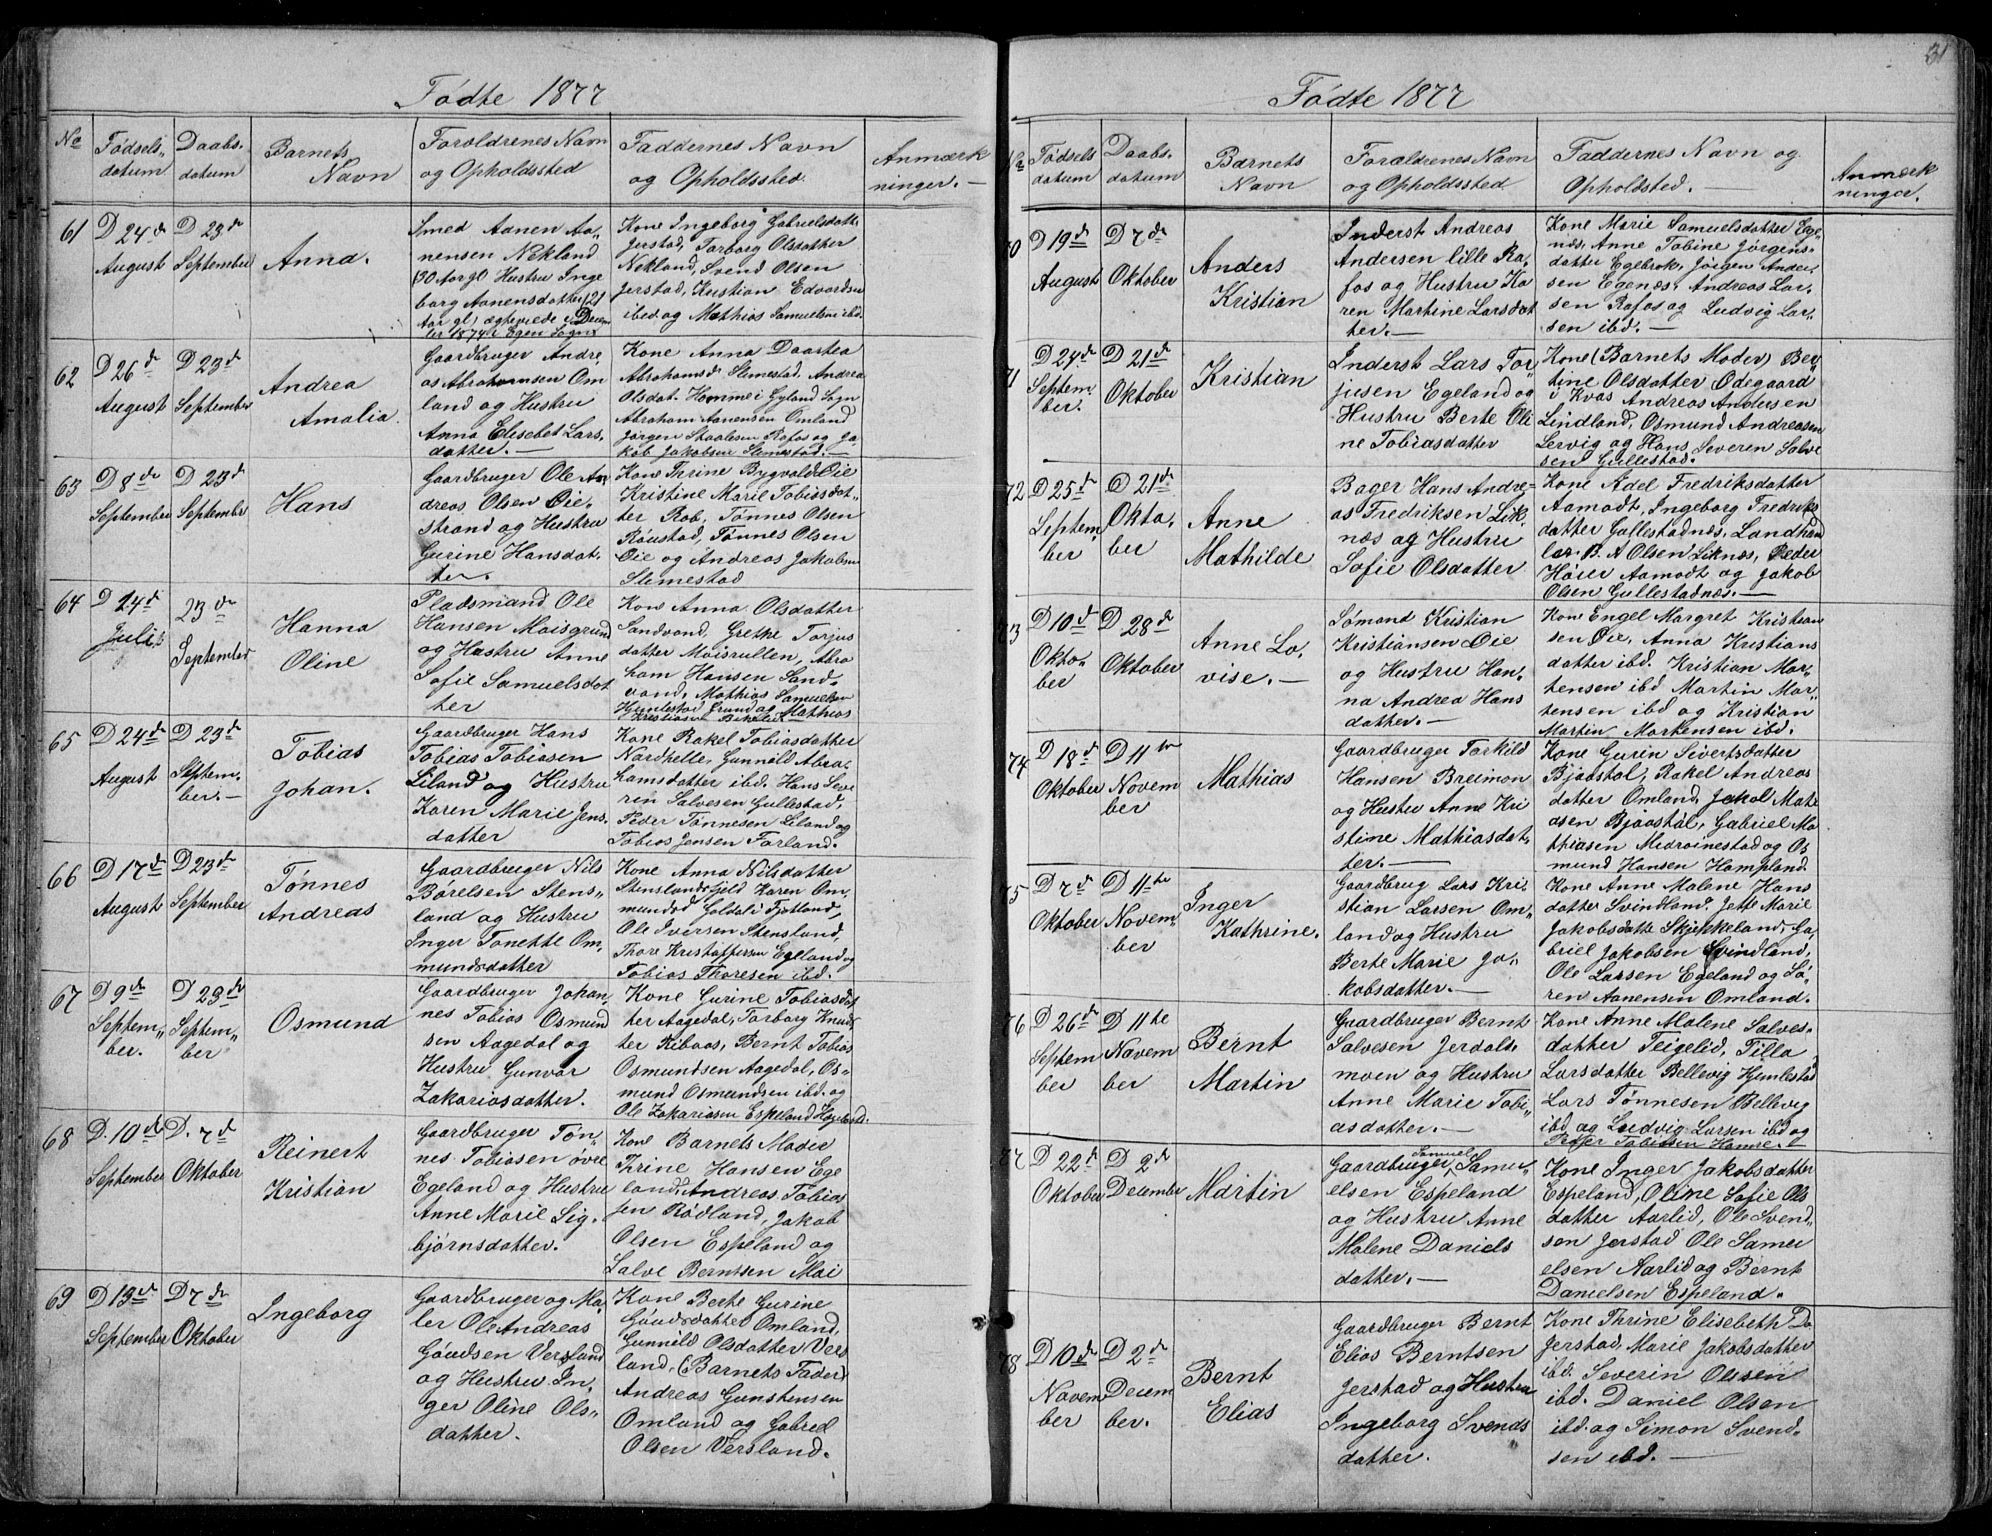 Fødte 1877
No
Fødsels-
datum
Daabs-
datum
Barnets
Navn
Forældrenes Navn
og Opholdssted
Faddernes Navn
og Opholdssted
Anmærk
ninger. -
61
D 24de
August
D 23de
September
Anna.
Smed Aanen Aa-
nensen Nekland
(30 Aar gl) Hustru Inge
borg Aanensdatter (21
Aar gl) ægteviede i Decem
ber 1874 i Egen Sogn
Kone Ingeborg Gabrielsdatt.
Jerstad, Torborg Olsdatter
Nekland, Svend Olsen
Jerstad, Kristian Edvardsen
ibed og Mathias Samuelsen ibd.
62
D 26de
August
D 23de
September
Andrea
Amalia.
Gaardbruger Andre
as Abrahamsen Om
land og Hustru
Anna Elisebet Lars-
datter. -
Kone Anna Daartea
Abrahamsdr Slimestad. Andrea
Olsdat. Homme i Gyland Sogn
Abraham Aanensen Omland
Jørgen Staalesen Rafos og Ja-
kob Jakobsen Slimestad. -
63
D 8de
September
D 23de
September
Hans
Gaardbruger Ole An
dreas Olsen Øie-
strand og Hustru
Gurine Hansdat-
ter.
Kone Thrine Bygvold Øie
Kristine Marie Tobiasdat-
ter Rob, Tønnes Olsen
Røiestad, Tønnes Olsen
Øie og Andreas Jakobsen
Slimestad
64
D 24de
Juli
23de
September
Hanna
Oline
Pladsmand Ole
Hansen Moisgrund
og Hustru Anne
Sofie Samuelsdat
ter
Kone Anna Olsdatter
Sandvand, Grethe Torjus
datter Moisrullen, Abra
ham Hansen Sand-
vand, Mathias Samuelsen
Hjemlestad Grund og Mathias
Kristiansen
65
D 24de
August
D 23de
Septem-
ber. -
Tobias
Johan.
Gaardbruger Hans
Tobias Tobiasen
Liland og Hustru
Karen Marie Jens-
datter
Kone Rakel Tobiasdatter
Nardhelle, Gunnild Abra-
hamsdatter ibd. Hans Seve
rin Salvesen Gullestad,
Peder Tønnesen Liland og
Tobias Jensen Farland.
66
D 17de
August
D 23de
September
Tønnes
Andreas
Gaardbruger Nils
Børelsen Stens-
land og Hustru
Inger Tonette Om-
mundsdatter
Kone Anna Nilsdatter
Stenslandsfjeld Karen Om-
mundsd Goldal i Fjotland,
Ole Iversen Stensland,
Thore Kristoffersen Egeland og
Tobias Thoresen ibd.
67
D 9de
Septem-
ber.
D 23de
Septem-
ber
Osmund
Gaardbruger Johan-
nes Tobias Osmund
sen Aagedal og
Hustru Gunvor
Zakariasdatter.
Kone Gurine Tobiasdat
ter Aagedal, Torborg Knuds
ter Ribaas, Bernt Tobias
Osmundsen Aagedal, Os-
mund Osmundsen ibd. og
Ole Zakariasen Espeland
68
D. 10de
September
D. 7de
Oktober
Reinert
Kristian
Gaardbruger Tøn-
nes Tobiasen øvre
Egeland og Hustru
Anne Marie Sig-
bjørnsdatter.
Kone Barnets Moder
Thrine Hansen Ege
land, Andreas Tobias
sen Rødland, Jakob
Olsen Espeland og
Salve Berntsen Moi
69
D 13de
September
D 7de
Oktober
Ingeborg
Gaardbruger og Ma-
ler Ole Andreas
Goudsen Versland
og Hustru In-
ger Oline Ols-
datter.
Kone Berte Gurine
Goudsdatter Omland,
Gunnild Olsdatter Vers
land, (Barnets Fader)
Andreas Gunstensen
Omland og Gabriel
Olsen Versland.
31
Fødte 1877
No
Fødsels
datum
Daabs-
datum
Barnets
Navn
Forældrenes Navn
og Opholdssted
Faddernes Navn og
Opholdsted. -
Anmærk
ninger.
70
D 19de
August
D 7de
Oktober
Anders
Kristian
Inderst Andreas
Andersen lille Ra-
fos og Hustru Ka
ren Martine Larsdat
ter. -
Kone Marie Samuelsdatter Ege-
næs, Anne Tobine Jørgens-
datter Egebrok, Jørgen Ander-
sen Egenæs, Andreas Lar-
sen Rafos og Ludvig Lar-
sen ibd. -
71
D 24de
Septem-
ber.
D 21de
Oktober
Kristian
Inderst Lars Tor-
jusen Egeland og
Hustru Berte Oli
ne Tobiasdatter
Kone (Barnets Moder) Ber-
tine Olsdatter Ødegaard
i Kvas Andreas Andersen
Lindland, Osmund Andreasen
Lervig og Hans Severen Salve
sen Gullestad.
72
D 25de
Septem-
ber
D 21de
Okto-
ber
Anne
Mathilde
Bager Hans Andre-
as Fredriksen Lik-
næs og Hustru
Sofie Olsdatter
Kone Adel Fredriksdatter
Aamodt, Ingeborg Fredriks
datter Gullestadnæs, Landhand
ler B. A Olsen Liknæs, Peder
Høier Aamodt og Jakob
Olsen Gullestadnæs. -
73
D 10de
Okto-
ber
D 28de
Oktober
Anne Lo-
vise. -
Sømand Kristian
Kristiansen Øie
og Hustru Han-
na Andrea Hans
datter. -
Kone Engel Margret Kristian
sen Øie, Anna Kristians
datter ibd. Kristian Mor-
tensen ibd Martin Mor-
tensen ibd og Kristian
Martin Mortensen ibd.
74
D 18de
Oktober
D 11te
Novem
ber
Mathias
Gaardbruger Torkild
Hansen Breimon
og Hustru Anne Kri
stine Mathiasdat-
ter. -
Kone Gurin Sivertsdatter
Bjaastal, Rakel Andreas
datter Omland, Jakol Mathi
asen Bjaastal, Gabriel Ma
thiasen Midroinestad og Os
mund Hansen Hampland.
75
D 7de
Oktober
D 11te
Novem-
ber
Inger
Kathrine.
Gaardbrug Lars Kri-
stian Larsen Om-
land og Hustru
Berte Marie Ja-
kobsdatter. -
Kone Anne Malene Hans
datter Svindland, Jette Marie
Jakobsdatte Skjekkeland, Ga-
briel Jakobsen Svindland,
Ole Larsen Egeland og Sø-
ren Aanensen Omland.
76
D 26de
Septem
ber
D 11te
Novem
ber
Bernt
Martin
Gaardbruger Bernt
Salvesen Jerdals-
moen og Hustru
Anne Marie Tobi-
asdatter. -
Kone Anne Malene Salves-
datter Teigelid, Tilla
Larsdatter Bellevig Hjemlestad
Lars Tønnesen Bellevig
ibd og Ludvig Larsen ibd og
Peder Tobiassen Hamre.
77
D 22de
Oktober
D 2de
December
Martin
Gaardbruger Samuel Samu-
elsen Espeland
og Hustru Anne
Malene Daniels
datter. -
Kone Inger Jakobsdatter
Espeland, Oline Sofie Ols
datter Aarlid, Ole Svend-
sen Jerstad Ole Samu
elsen Aarlid og Bernt
Danielsen Espeland.
78
D 10de
Novem
ber
D 2de
Decem
ber.
Bernt
Elias
Gaardbruger Bernt
Elias Berntsen
Jerstad og Hustru
Ingeborg Svends
datter.
Kone Thrine Elisebeth Da
Jerstad, Marie Jakobsdatter
ibd. Severin Olsen
ibd. Daniel Olsen
ibd. og Simon Svend-
sen ibd. -